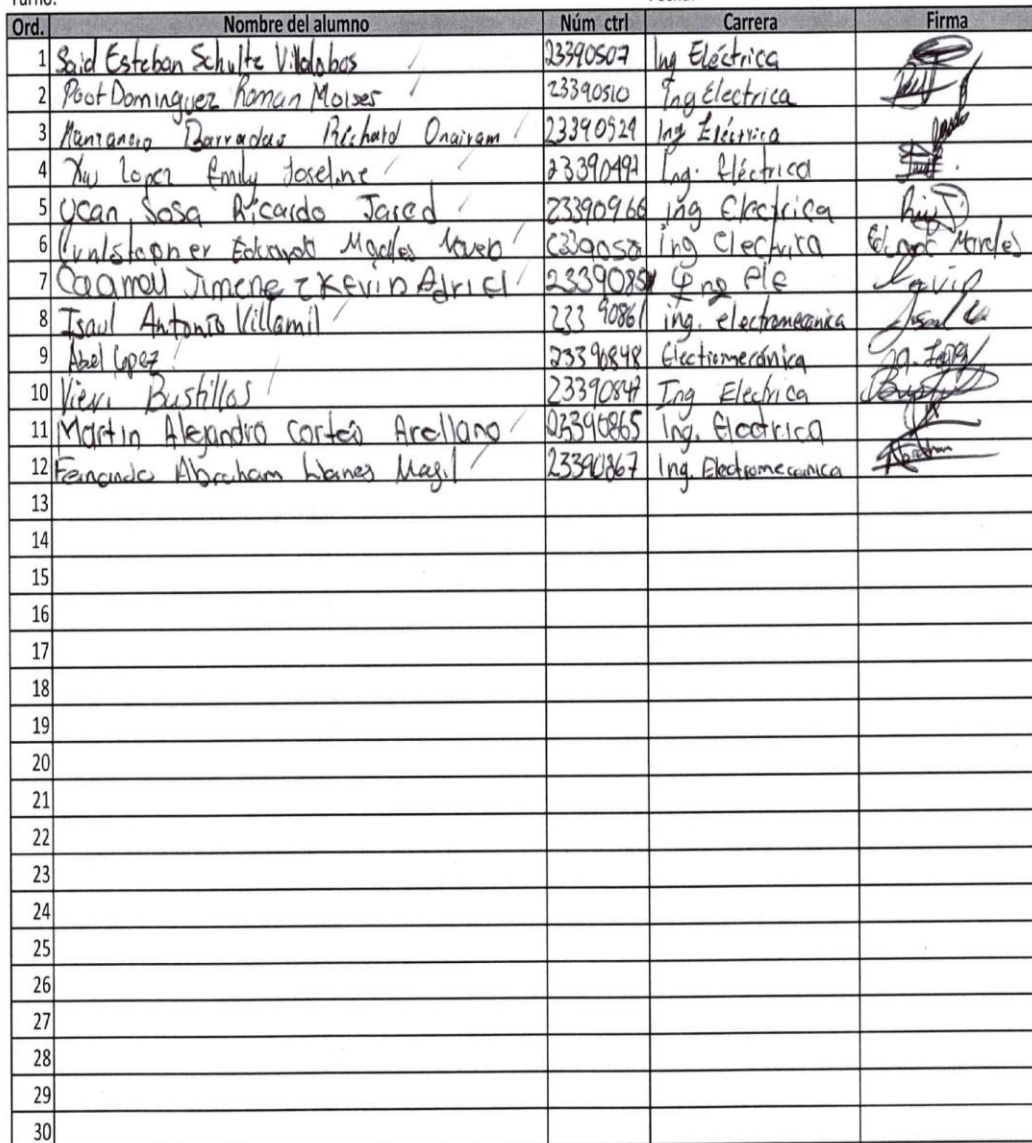 Turno:
Ord. Nombre del alumno Núm ctrl Carrera Firma
1 Said Esteban Schultz Villalobos 23390507 Ing Eléctrica
2 Poot Dominguez Roman Moises 23390510 Ing Electrica
3 Manzanero Barradas Richard Onairam 23390529 Ing Eléctrica
4 Xiu Lopez Emily Joseline Ing. Eléctrica
5 Ucan Sosa Ricardo Jared 23390966 ing Electrica
6 Eduardo ing Electrica Eduardo Morales
7 Caamal Jimenez Kevin Adriel Ing Ele Kevin
8 Isaul Antonio Villamil 23390861 ing. electromecanica
9 Abel Lopez 23390848 Electromecánica
10 Vieri Bustillos 23390847 Ing Electrica
11 Martin Alejandro Cortés Arellano 23390865 Ing. Electrica
12 Fernando Abraham Llanes 23390867 Ing. Electromecanica Abraham
13
14
15
16
17
18
19
20
21
22
23
24
25
26
27
28
29
30